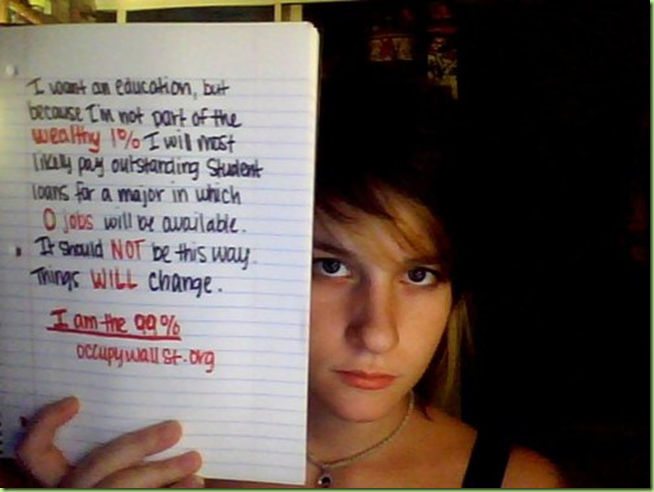 I want an education, but
because I'm not part of the
wealthy 1% I will most
likely pay outstanding student
loans for a major in which
0 jobs will be available.
It should NOT be this way.
Things WILL change.
I am the 99%
occupywallst.org